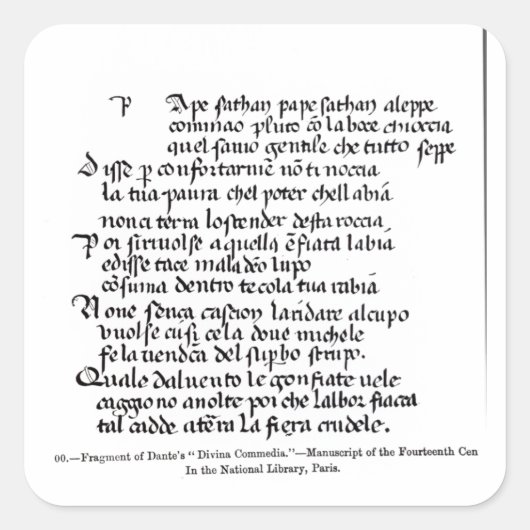 P Ape sathan pape sathan aleppe
cominao pluto cõ la boce chioccia
quel savio gentile che tutto seppe
Disse p confortarmẽ nõ ti noccia
la tua paura chel poter chelli abiã
non ci terra lo scender desta roccia
Poi si rivolse a quella ẽfiata labiã
e disse tace maladcõ lupo
cõsuma dentro te cola tua rabiã
None senca cascion landare alcupo
vuolse cusi cela dove michele
fe la vendcã del supbo strupo.
Quale dal vento le gonfiate vele
caggiono avolte poi che lalbor fiacca
tal cadde a terra la fiera crudele.
00.—Fragment of Dante's "Divina Commedia."—Manuscript of the Fourteenth Cen
In the National Library, Paris.